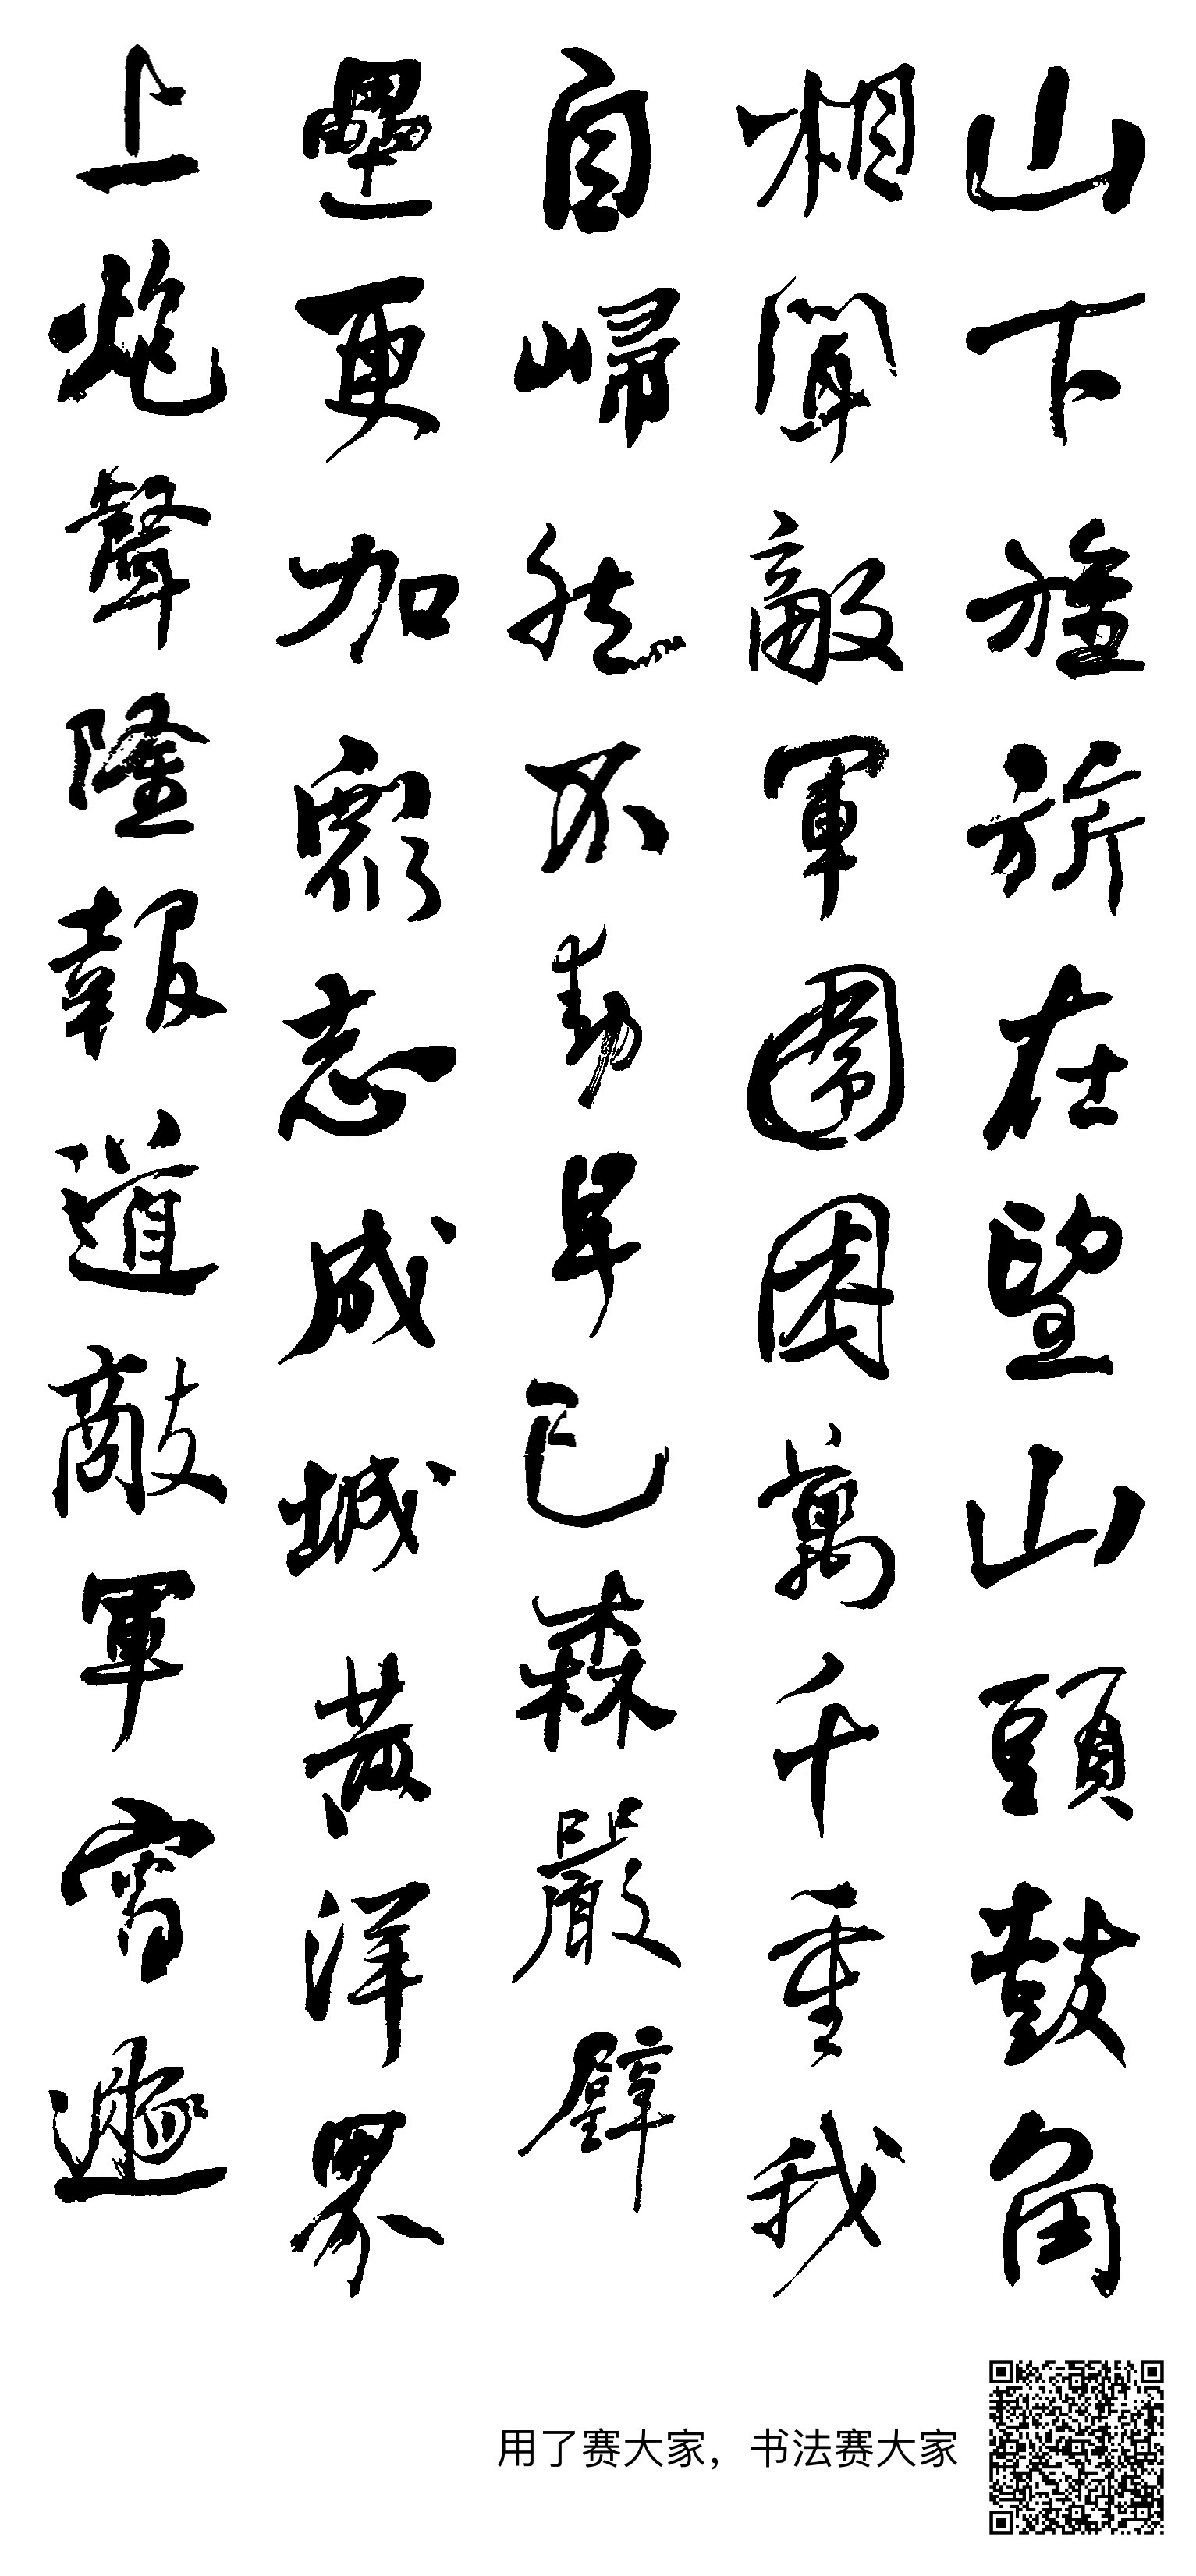 山下旌旂在望山頭鼓角
相聞敵軍圍困萬千重我
自歸然不動早已森嚴壁
壘更加衆志成城黄洋界
上炮聲隆報道敵軍宵遁
用了赛大家，书法赛大家